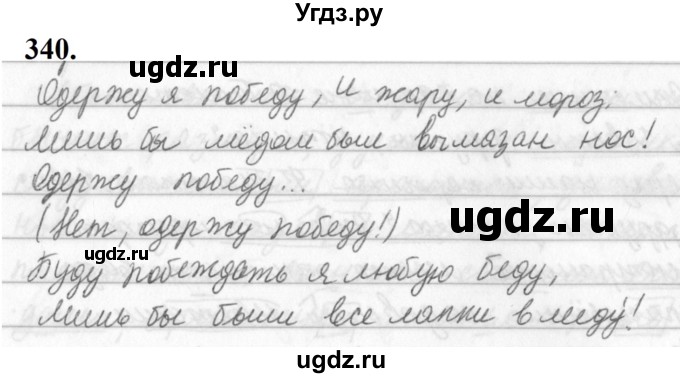 Угдз.ру
340.
ugdz.ru
Одержу я победу, и жару, и мороз,
ugdz.ru
Лишь бы мёдом был вымазан нос!
Одержу победу...
ugdz.ru
(Нет, одержу победу!)
ugdz.ru
Буду побеждать я любую беду,
ugdz.ru
Лишь бы были все лапки в меду!
ugdz.ru